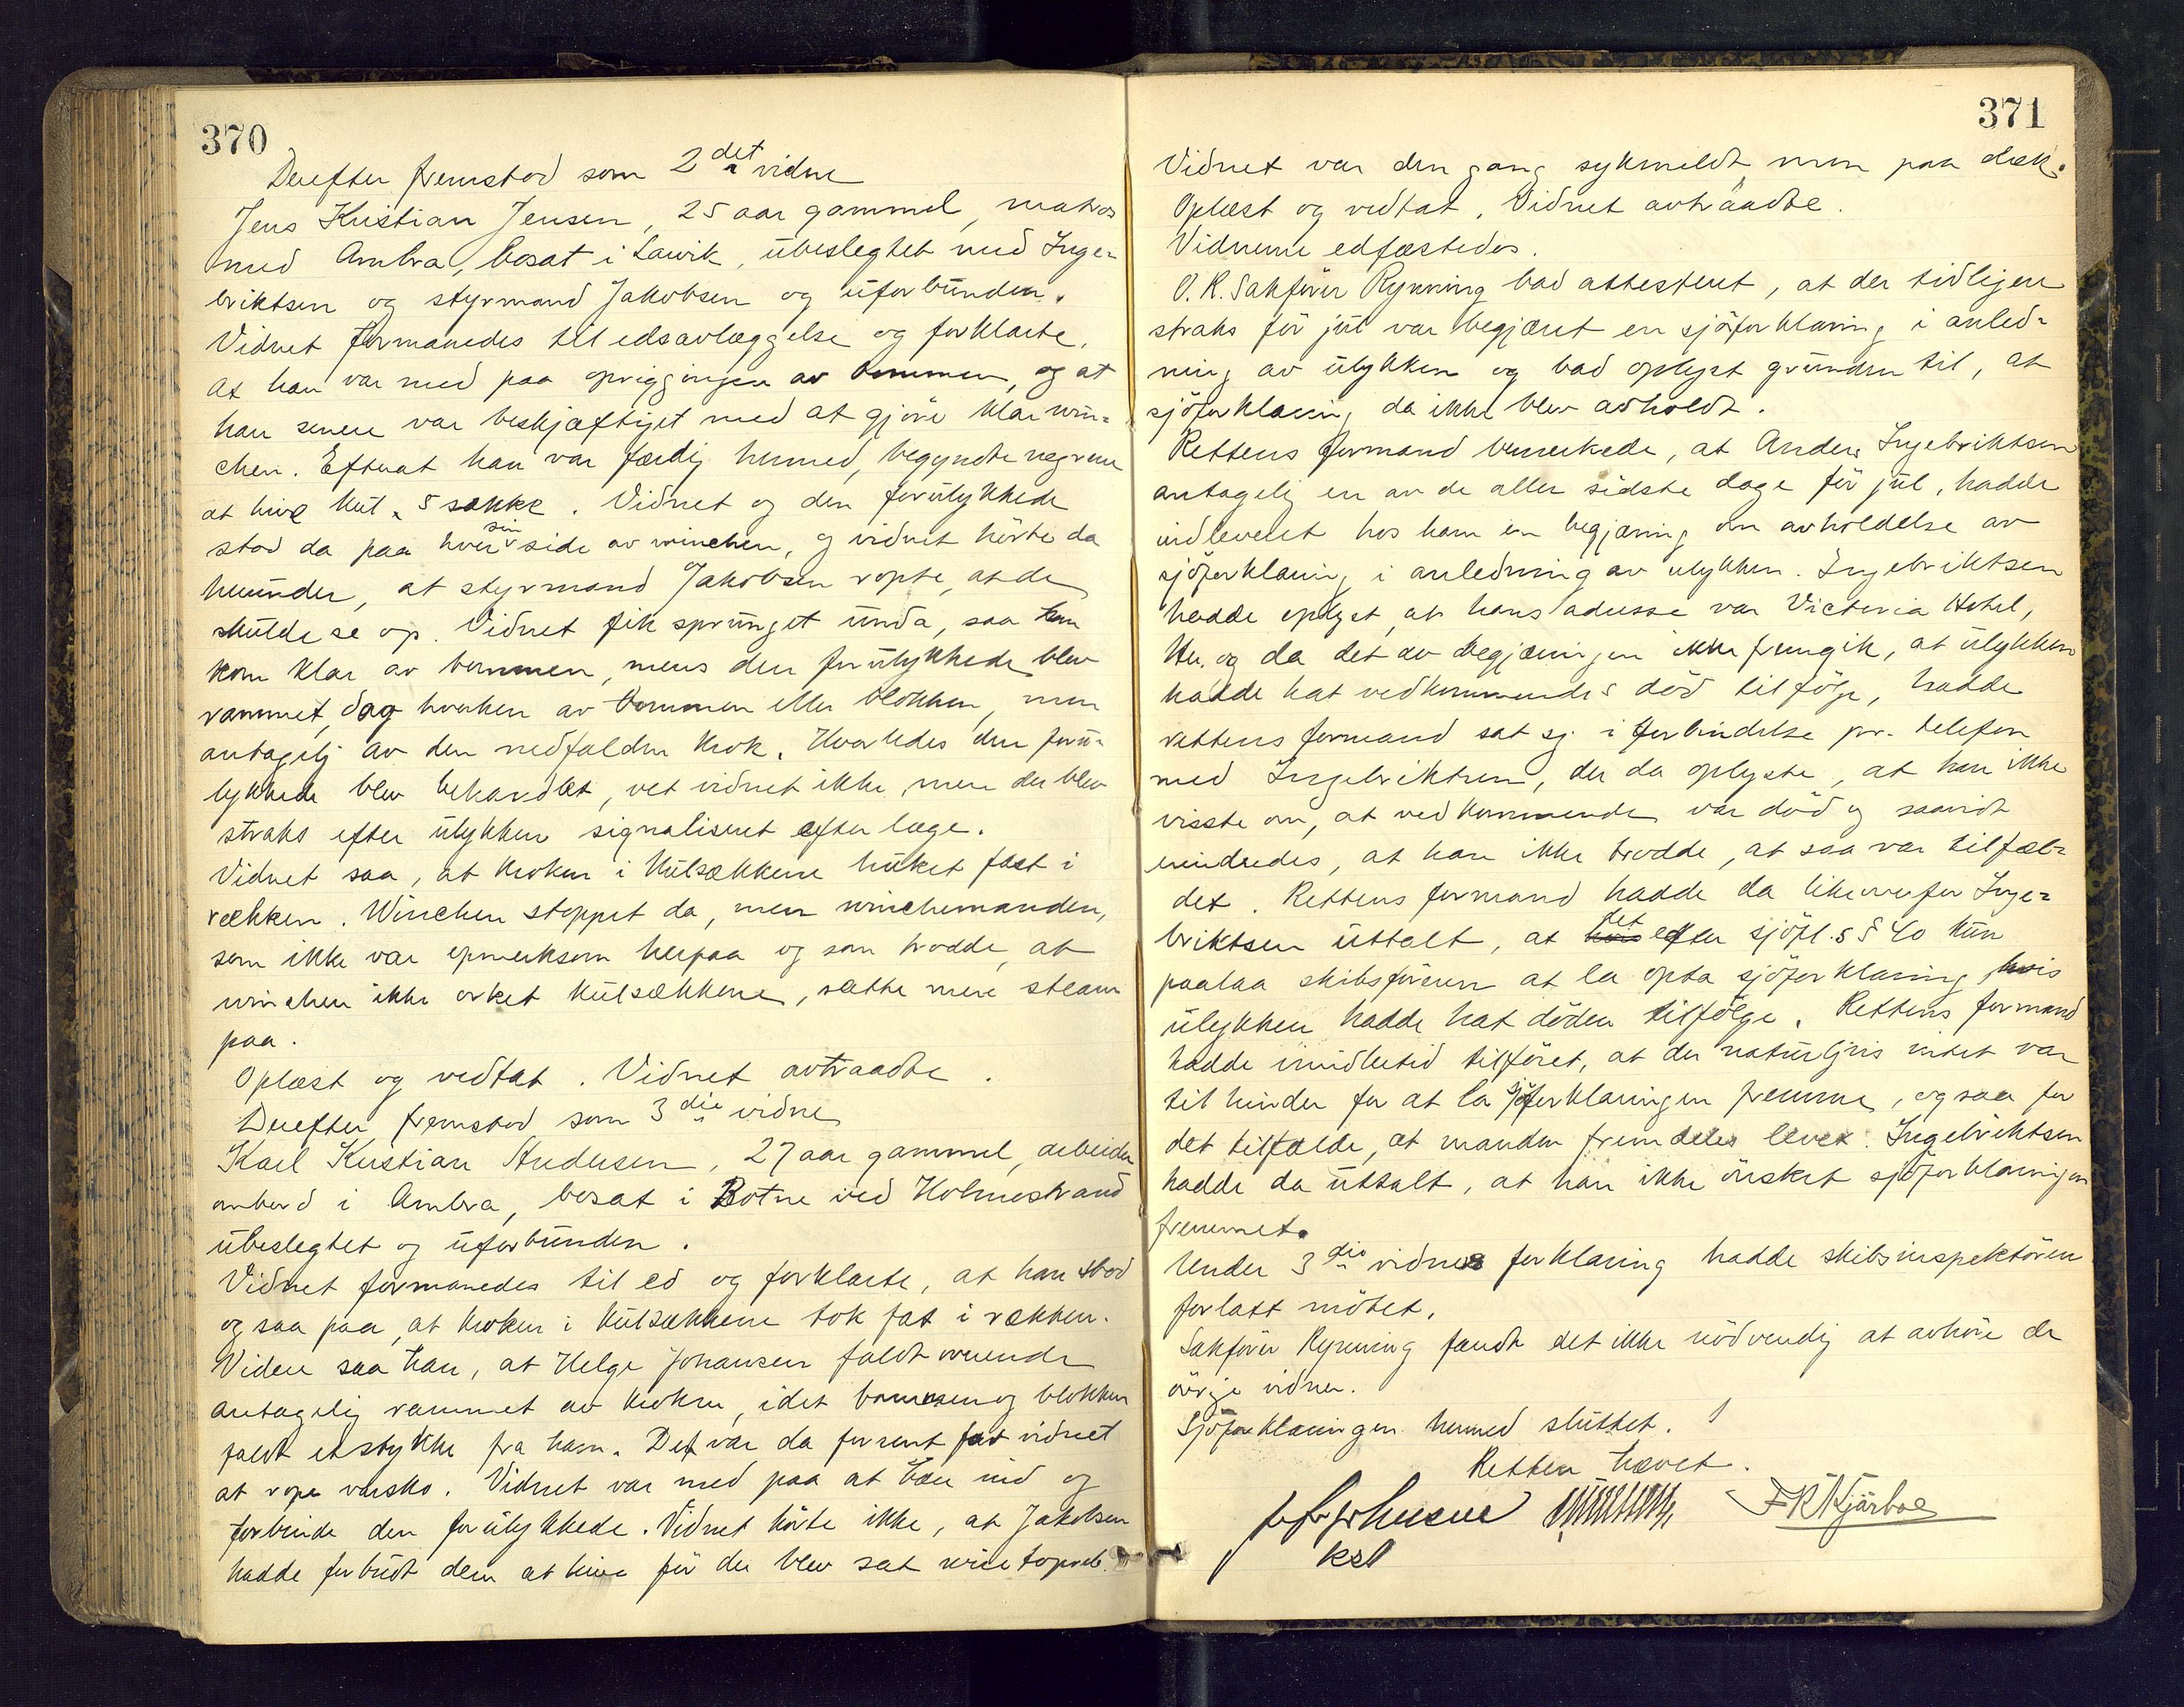 370
Derefter fremstod som 2det vidne
Jens Kristian Jensen, 25 aar gammel, matros
med Ambra, bosat i Larvik, ubeslegtet med Inge-
briktsen og styrmand Jakobsen og uforbunden.
Vidnet formanedes til edsavlæggelse og forklarte,
at han var med paa oprigginge av bommen, og at
han senere var beskjæftiget med at gjöre klar win-
chen. Efterat han var færdig hermed, begyndte negrene
at hive kul, 5 sække. Vidnet og den forulykkede
stod da paa hver sin side av winchen, og vidnet hörte da
herunder, at styrmand Jakobsen ropte, at de
skulde se op. Vidnet fik sprunget unda, saa han
kom klar av bommen, mens den forulykkede blev
rammet, dog hverken av bommen eller blokken, men
antagelig av den nedfaldne krok. Hvorledes den foru-
lykkede blev behandlet, vet vidnet ikke, men der blev
straks efter ulykken signaliseret efter læge.
Vidnet saa, at kroken i kulsækkene huket fast i
rækken. Winchen stoppet da, men winchemanden,
som ikke var opmerksom herpaa og som trodde, at
winchen ikke orket kulsækkene, satte mere steam
paa.
Oplæst og vedtat. Vidnet avtraadte.
Derefter fremstod som 3die vidne
Karl Kristian Andersen, 27 aar gammel, arbeider
ombord i Ambra, bosat i Botne ved Holmestrand
ubeslegtet og uforbunden.
Vidnet formanedes til ed og forklarte, at han stod
og saa paa, at kroken i kulsækkene tok fat i rækken.
Videre saa han, at Helge Johansen faldt overende
antagelig rammet av kroken, idet bommen og blokken
faldt et stykke fra ham. Det var da forsent for vidnet
at rope varsko. Vidnet var med paa at bære ind og
forbinde den forulykkede. Vidnet hörte ikke, at Jakobsen
hadde forbudt dem at hive för der blev sat wiretopreb.
371
Vidnet var den gang sykmeldt, men paa dæk.
Oplæst og vedtat. Vidnet avtraadte.
Vidnerne edfæstedes.
O.R. Sakförer Rynning bad attestert, at der tidligere
straks för jul var begjæret en sjöforklaring i anled-
ning av ulykken og bad oplyst grunden til, at
sjöforklaring da ikke blev avholdt.
Rettens formand bemerkede, at Anders Ingebriktsen
antagelig en av de aller sidste dage för jul, hadde
indleveret hos ham en begjæring om avholdelse av
sjöforklaring i anledning av ulykken. Ingebriktsen
hadde oplyst, at hans adresse var Victoria Hotel,
Her, og da det av begjæringen ikke fremgik, at ulykken
hadde hat vedkommendes död tilfölge, hadde
rettens formand sat sig i forbindelse pr. telefon
med Ingebriktsen, der da oplyste, at han ikke
visste om, at vedkommende var död og saavidt
erindredes, at han ikke trodde, at saa var tilfæl-
det. Rettens formand hadde da likeoverfor Inge-
briktsen uttalt, at det efter sjöfl.s § 40 kun
paalaa skibsföreren at la opta sjöforklaring, hvis
ulykken hadde hat döden tilfölge. Rettens formand
hadde imidlertid tilföiet, at der naturligvis intet var
til hinder for at la sjöforklaringen fremme, ogsaa for
det tilfælde, at manden fremdeles levet. Ingebriktsen
hadde da uttalt, at han ikke önsket sjöforklaringen
fremmet.
Under 3die vidnes forklaring hadde skibsinspektören
forlatt mötet.
Sakförer Rynning fandt det ikke nödvendig at avhöre de
övrige vidner.
Sjöforklaringen hermed sluttet.
Retten hævet.
F K Kjärboe
kst